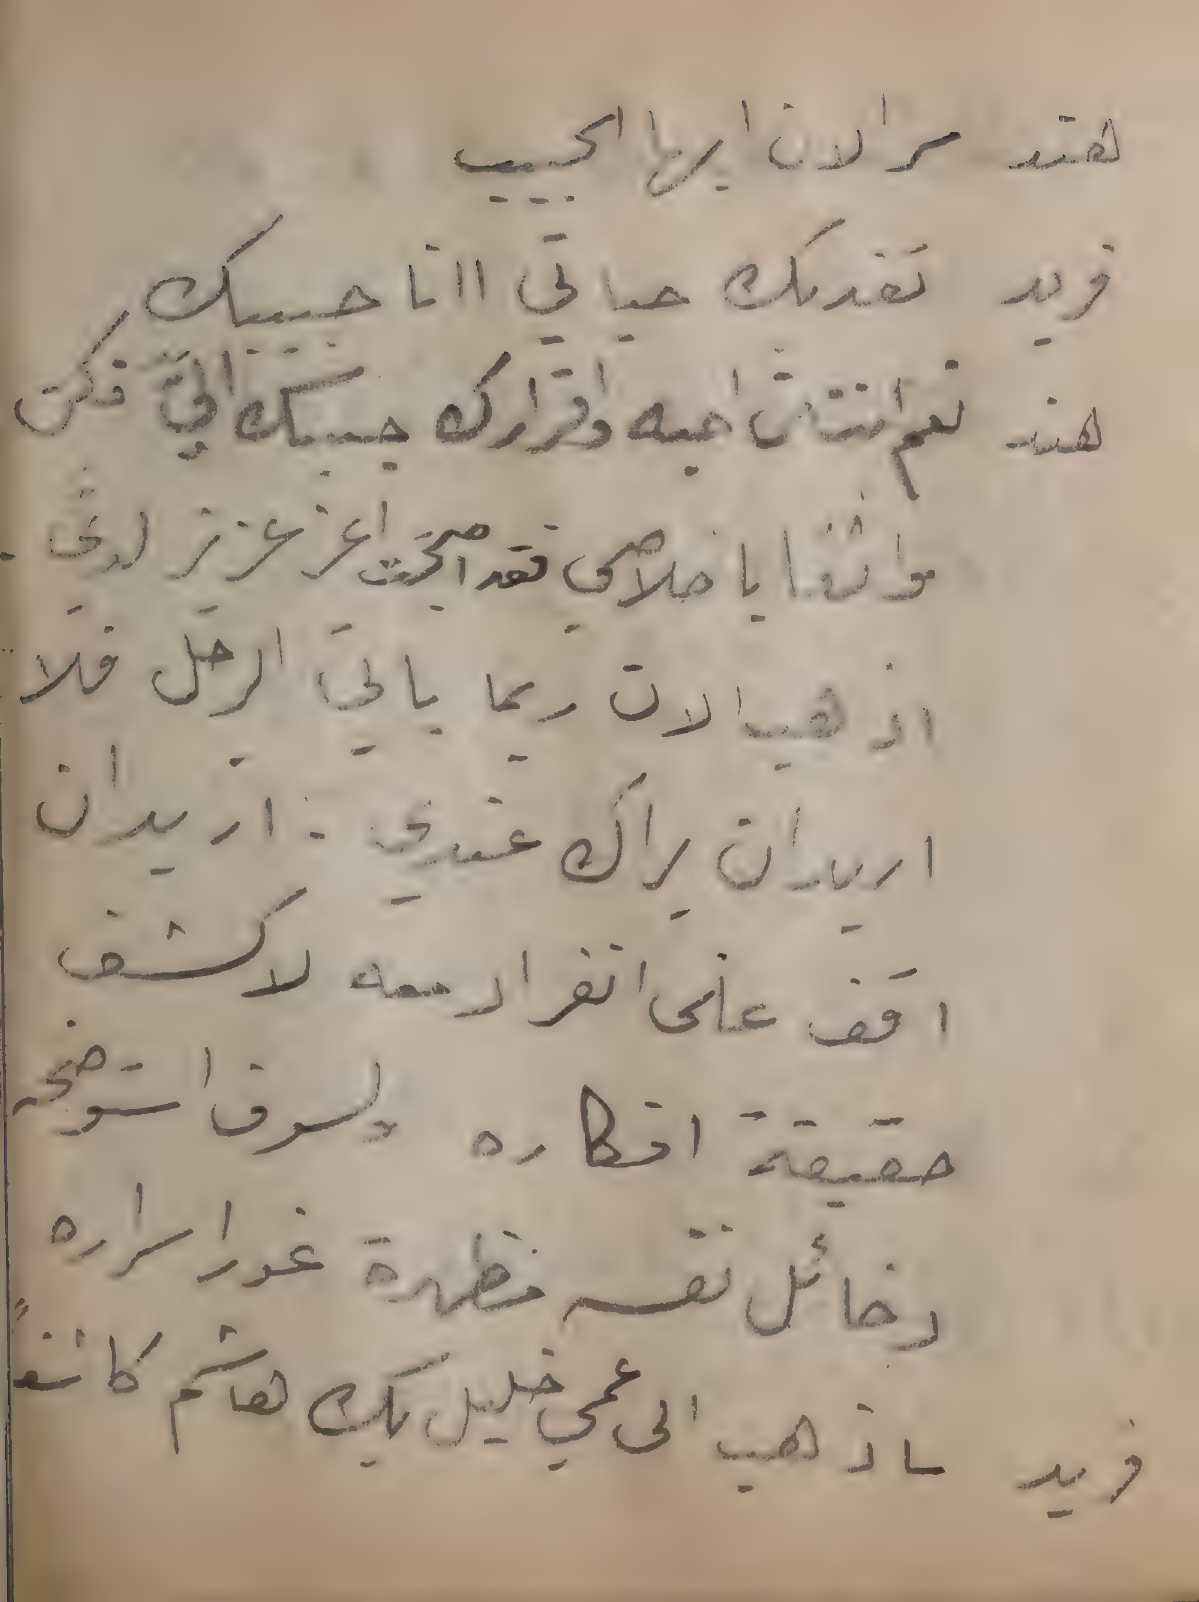 هند سر الان ايها الحبيب
فريد تفديك حياتي اانا حبيبك
هند نعم انت من احبه واقرارك حببك اليّ فكن
واثقا باخلاصي فقد اصبحت اعز عزيز لديّ .
اذهب الان ربما ياتي الرجل فلا
اريد ان يراك عندي . اريد ان
اقف على انفراد معه لاكشف
حقيقة افكاره ولسوف استوضحه
دخائل نفسه مظهرة غور اسراره
فريد ساذهب الى عمي خليل بك هاشم كاشفاً